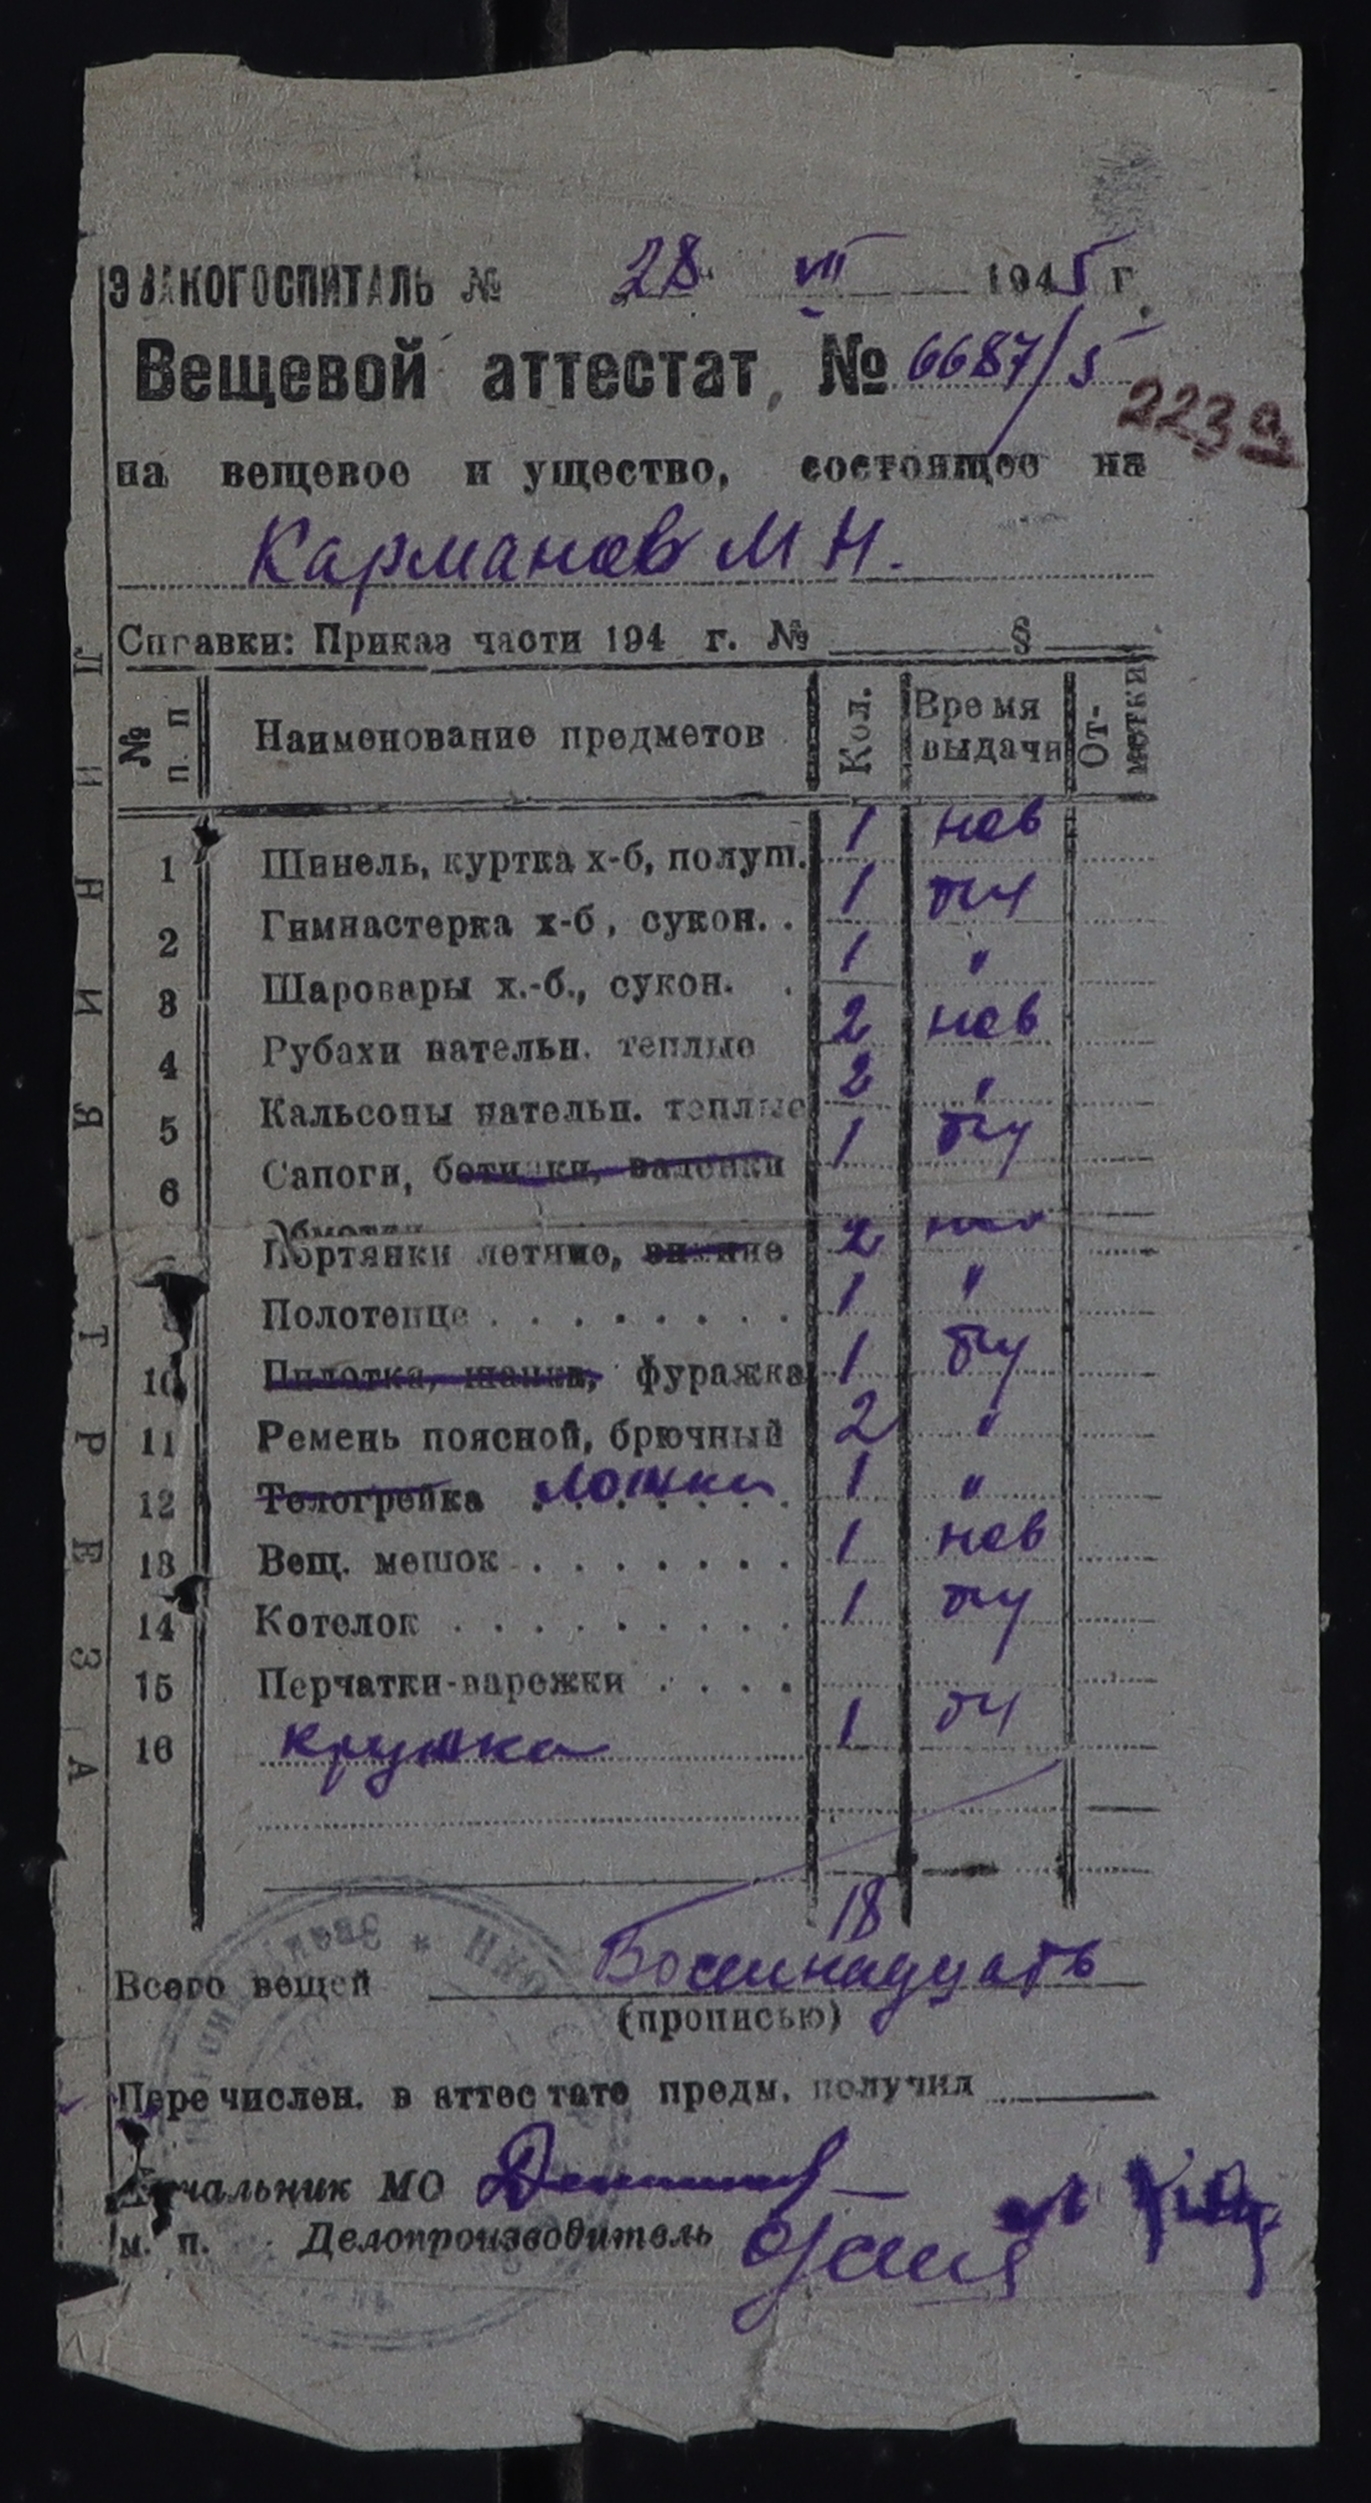 ЭВАКОГОСПИТАЛЬ № 28 VII 1945 г.
Вещевой аттестат, № 6687/5
223
на вещевое и ущество, состоящее на
Карманов М Н.
Справки: Приказ части 194 г. № § 
№ п. п Наименование предметов Кол. Время выдачи От-метки
1 Шинель, куртка х-б, полуш. 1 нов
2 Гимнастерка х-б, сукон. . 1 бу
3 Шаровары х.-б., сукон. . 1 "
4 Рубахи нательн. теплые 2 нов
5 Кальсоны нательн. теплые 2 "
6 Сапоги, ботинки, валенки 1 бу
Обмотки
Портянки летние, зимние 2 нов
Полотенце . . . . . . . . 1 "
10 Пилотка, шапка, фуражка 1 бу
11 Ремень поясной, брючный 2 "
12 Телогрейка ложка 1 "
13 Вещ. мешок . . . . . . . 1 нов
14 Котелок . . . . . . . . . 1 бу
15 Перчатки-варежки . . . .
16 кружка 1 бу
18
Всего вещей Восемнадцать
(прописью)
Перечислен. в аттестате предм. получил
Начальник МО
м. п. Делопроизводитель
ЛИНИЯ ОТРЕЗА